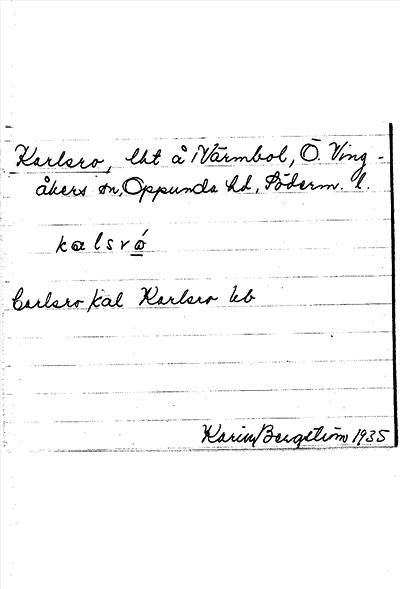 Karlsro, lht å Värmbol, Ö. Ving-
åkers sn, Oppunda hd, Söderm. l.
kalsrώ
Carlsro kal Karlsro kb
Karin Bergström 1935